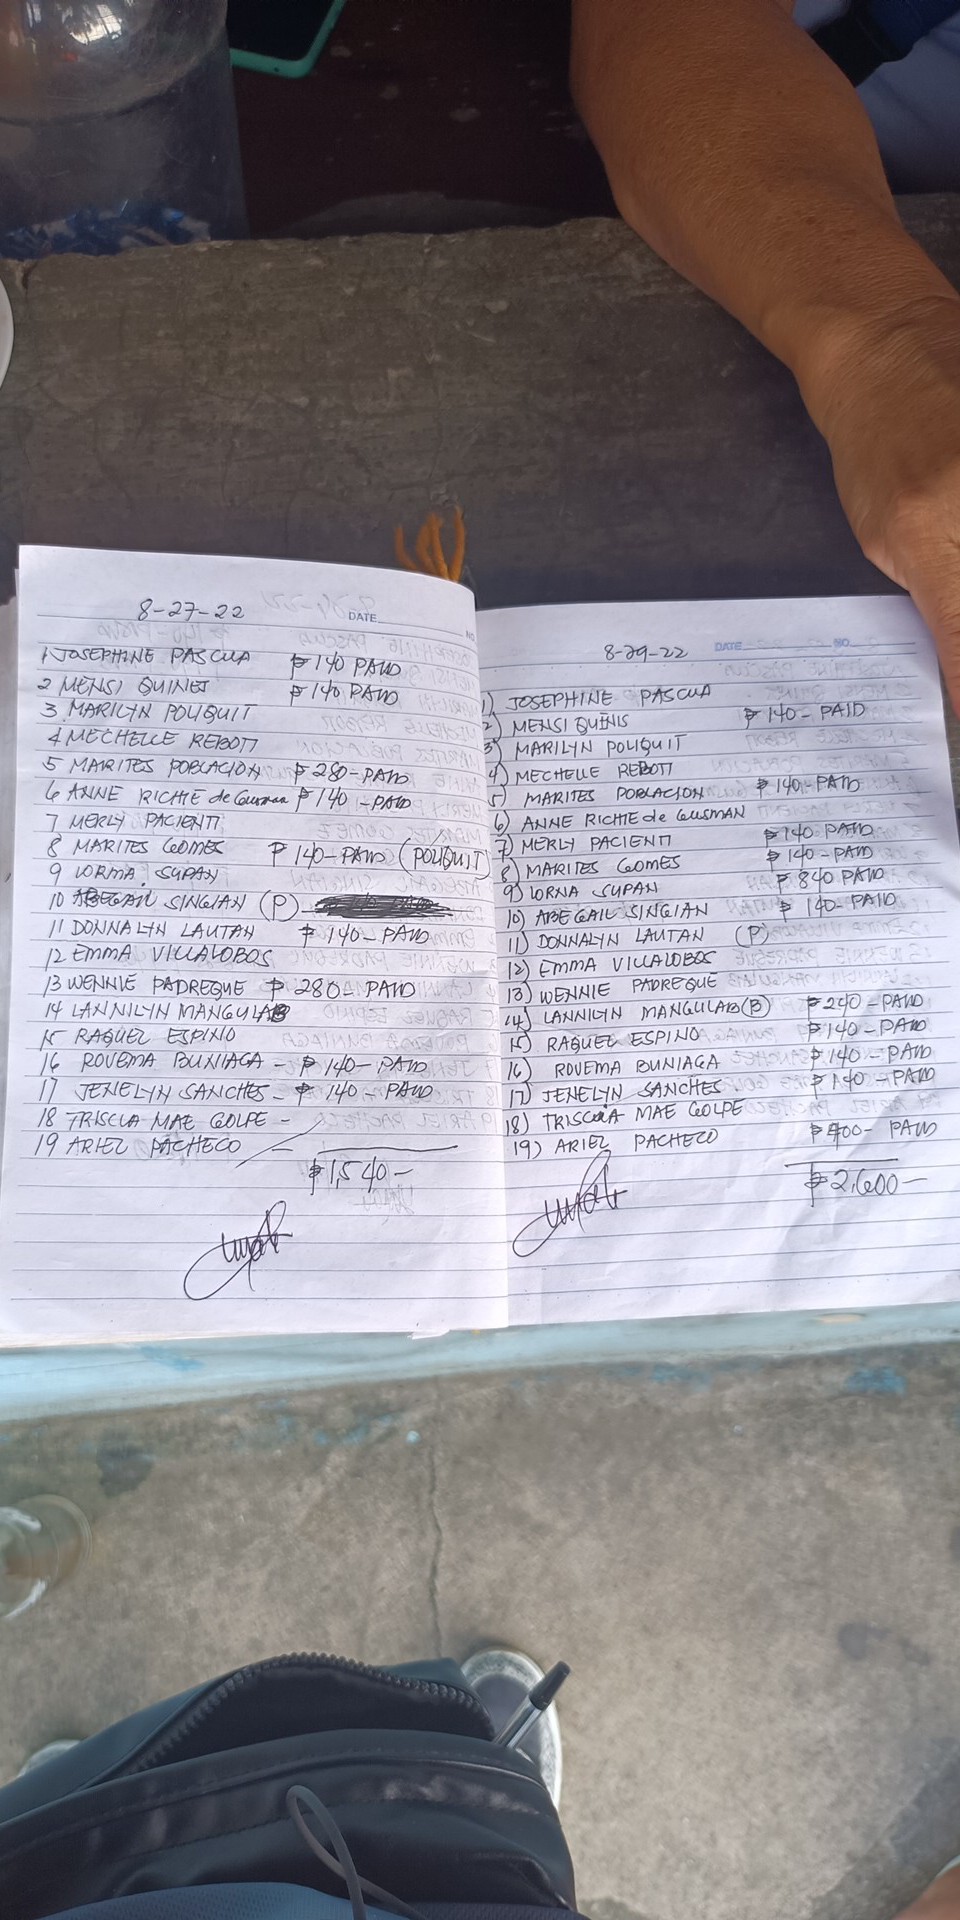 8-27-22 DATE NO
1 JOSEPHINE PASCUA ₱ 140 PAID
2 MENSI QUINES ₱ 140 PAID
3 MARILYN POLIQUIT
4 MECHELLE REBOTI
5 MARITES POBLACION ₱ 280-PAID
6 ANNE RICHIE de Gusman ₱ 140 -PAID
7 MERLY PACIENTI
8 MARITES GOMES ₱ 140-PAID (POLIQUIT)
9 LORMA SUPAN
10 ABEGAIL SINGIAN (P)
11 DONNALYN LAUTAN ₱ 140-PAID
12 EMMA VILLALOBOS
13 WENNIE PADREQUE ₱ 280-PAID
14 LANNILYN MANGULAB
15 RAQUEL ESPINO
16 ROVEMA BUNIAGA - ₱ 140-PAID
17 JENELYN SANCHES - ₱ 140-PAID
18 TRISCIA MAE GOLPE -
19 ARIEL PACHECO -
₱ 1,540-
8-29-22 DATE NO.
1) JOSEPHINE PASCUA
2) MENSI QUINIS ₱ 140-PAID
3) MARILYN POLIQUIT
4) MECHELLE REBOTI
5) MARITES POBLACION ₱ 140-PAID
6) ANNE RICHIE de GUSMAN
7) MERLY PACIENTI ₱ 140 PAID
8) MARITES GOMES ₱ 140-PAID
9) LORNA SUPAN ₱ 840 PAID
10) ABEGAIL SINGIAN ₱ 140-PAID
11) DONNALYN LAUTAN (P)
12) EMMA VILLALOBOS
13) WENNIE PADREQUE
14) LANNILYN MANGULAB (B) ₱ 240-PAID
15) RAQUEL ESPINO ₱ 140-PAID
16) ROVEMA BUNIAGA ₱ 140-PAID
17) JENELYN SANCHES ₱ 140-PAID
18) TRISCIA MAE GOLPE
19) ARIEL PACHECO ₱ 400-PAID
₱ 2,600-